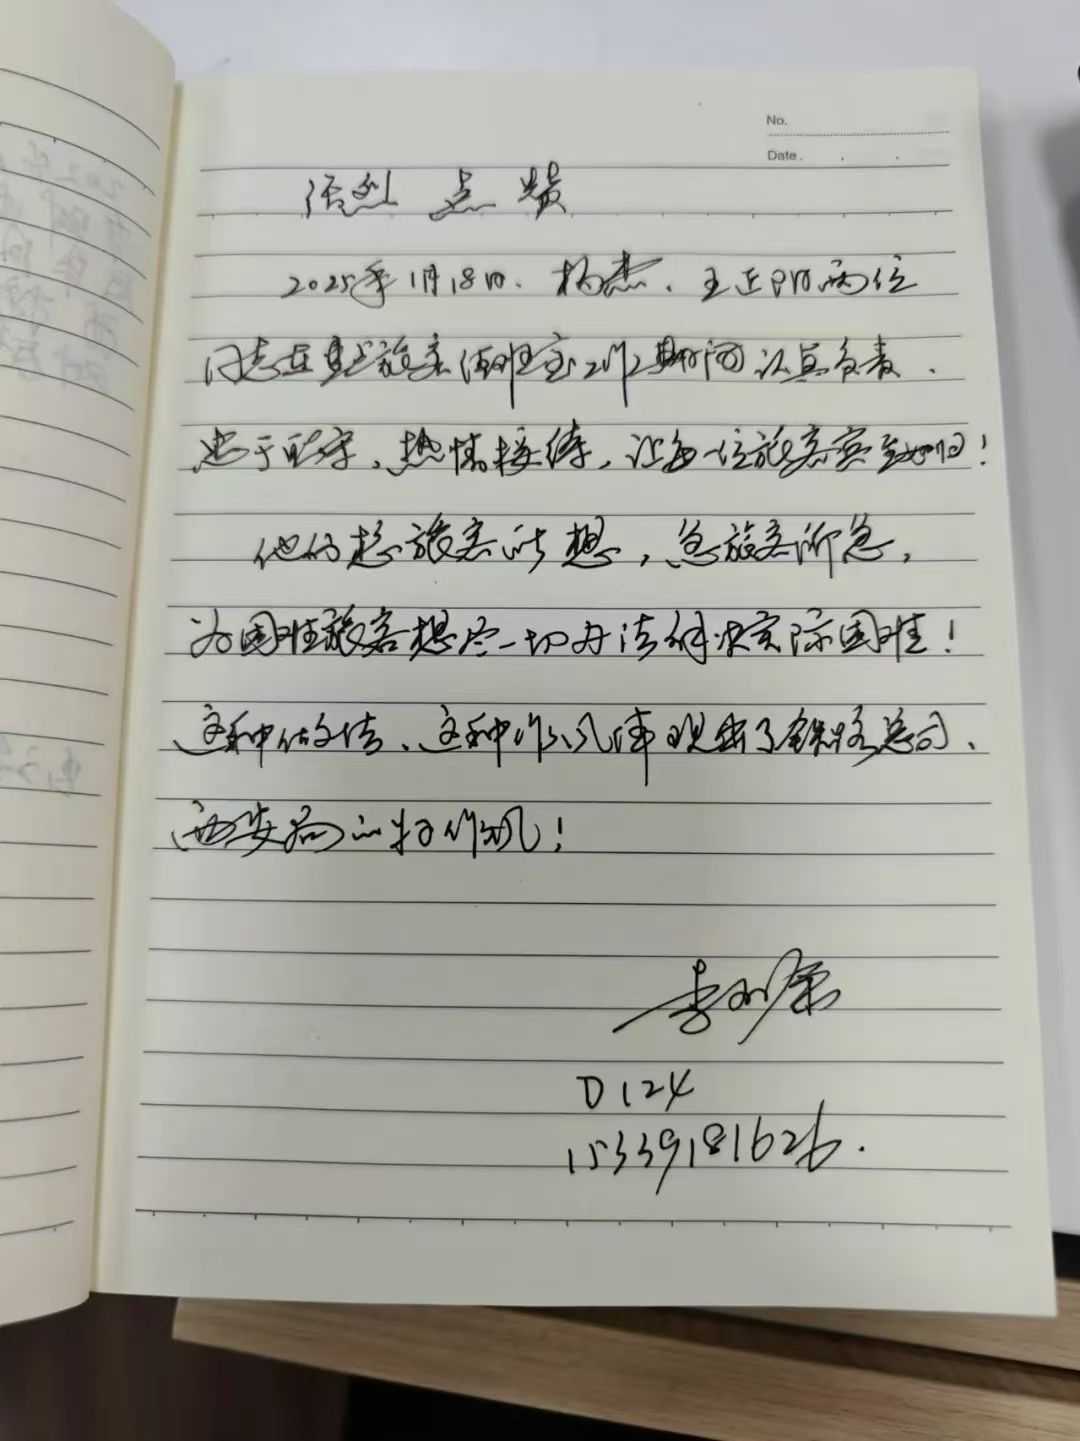 No.
Date.
强烈 点赞
2025年1月18日、杨杰、王正阳两位
同志在重点旅客值班室工作期间认真负责、
忠于职守、热情接待,让每一位旅客宾至如归!
他们想旅客所想,急旅客所急,
为困难旅客想尽一切办法解决实际困难!
这种做法、这种作风体现出了铁路总公司、
西安局的好作风!
D124
15339181626.